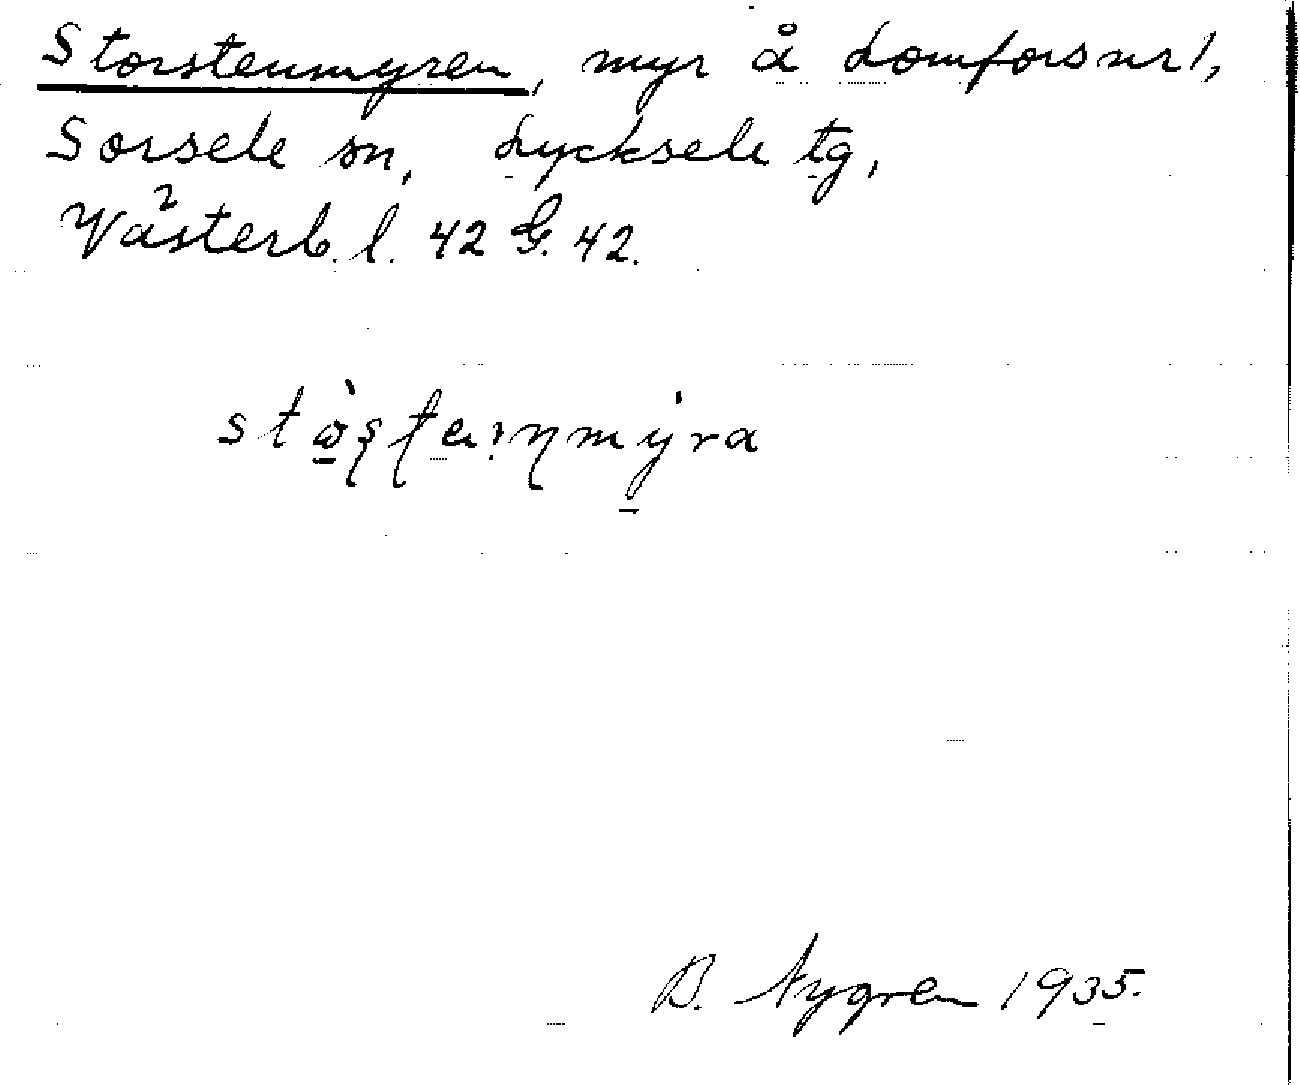 Storstenmyren, myr å Lomfors nr 1,
Sorsele sn, Lycksele tg,
Västerb. l. 42 G. 42.
B. Nygren 1935.